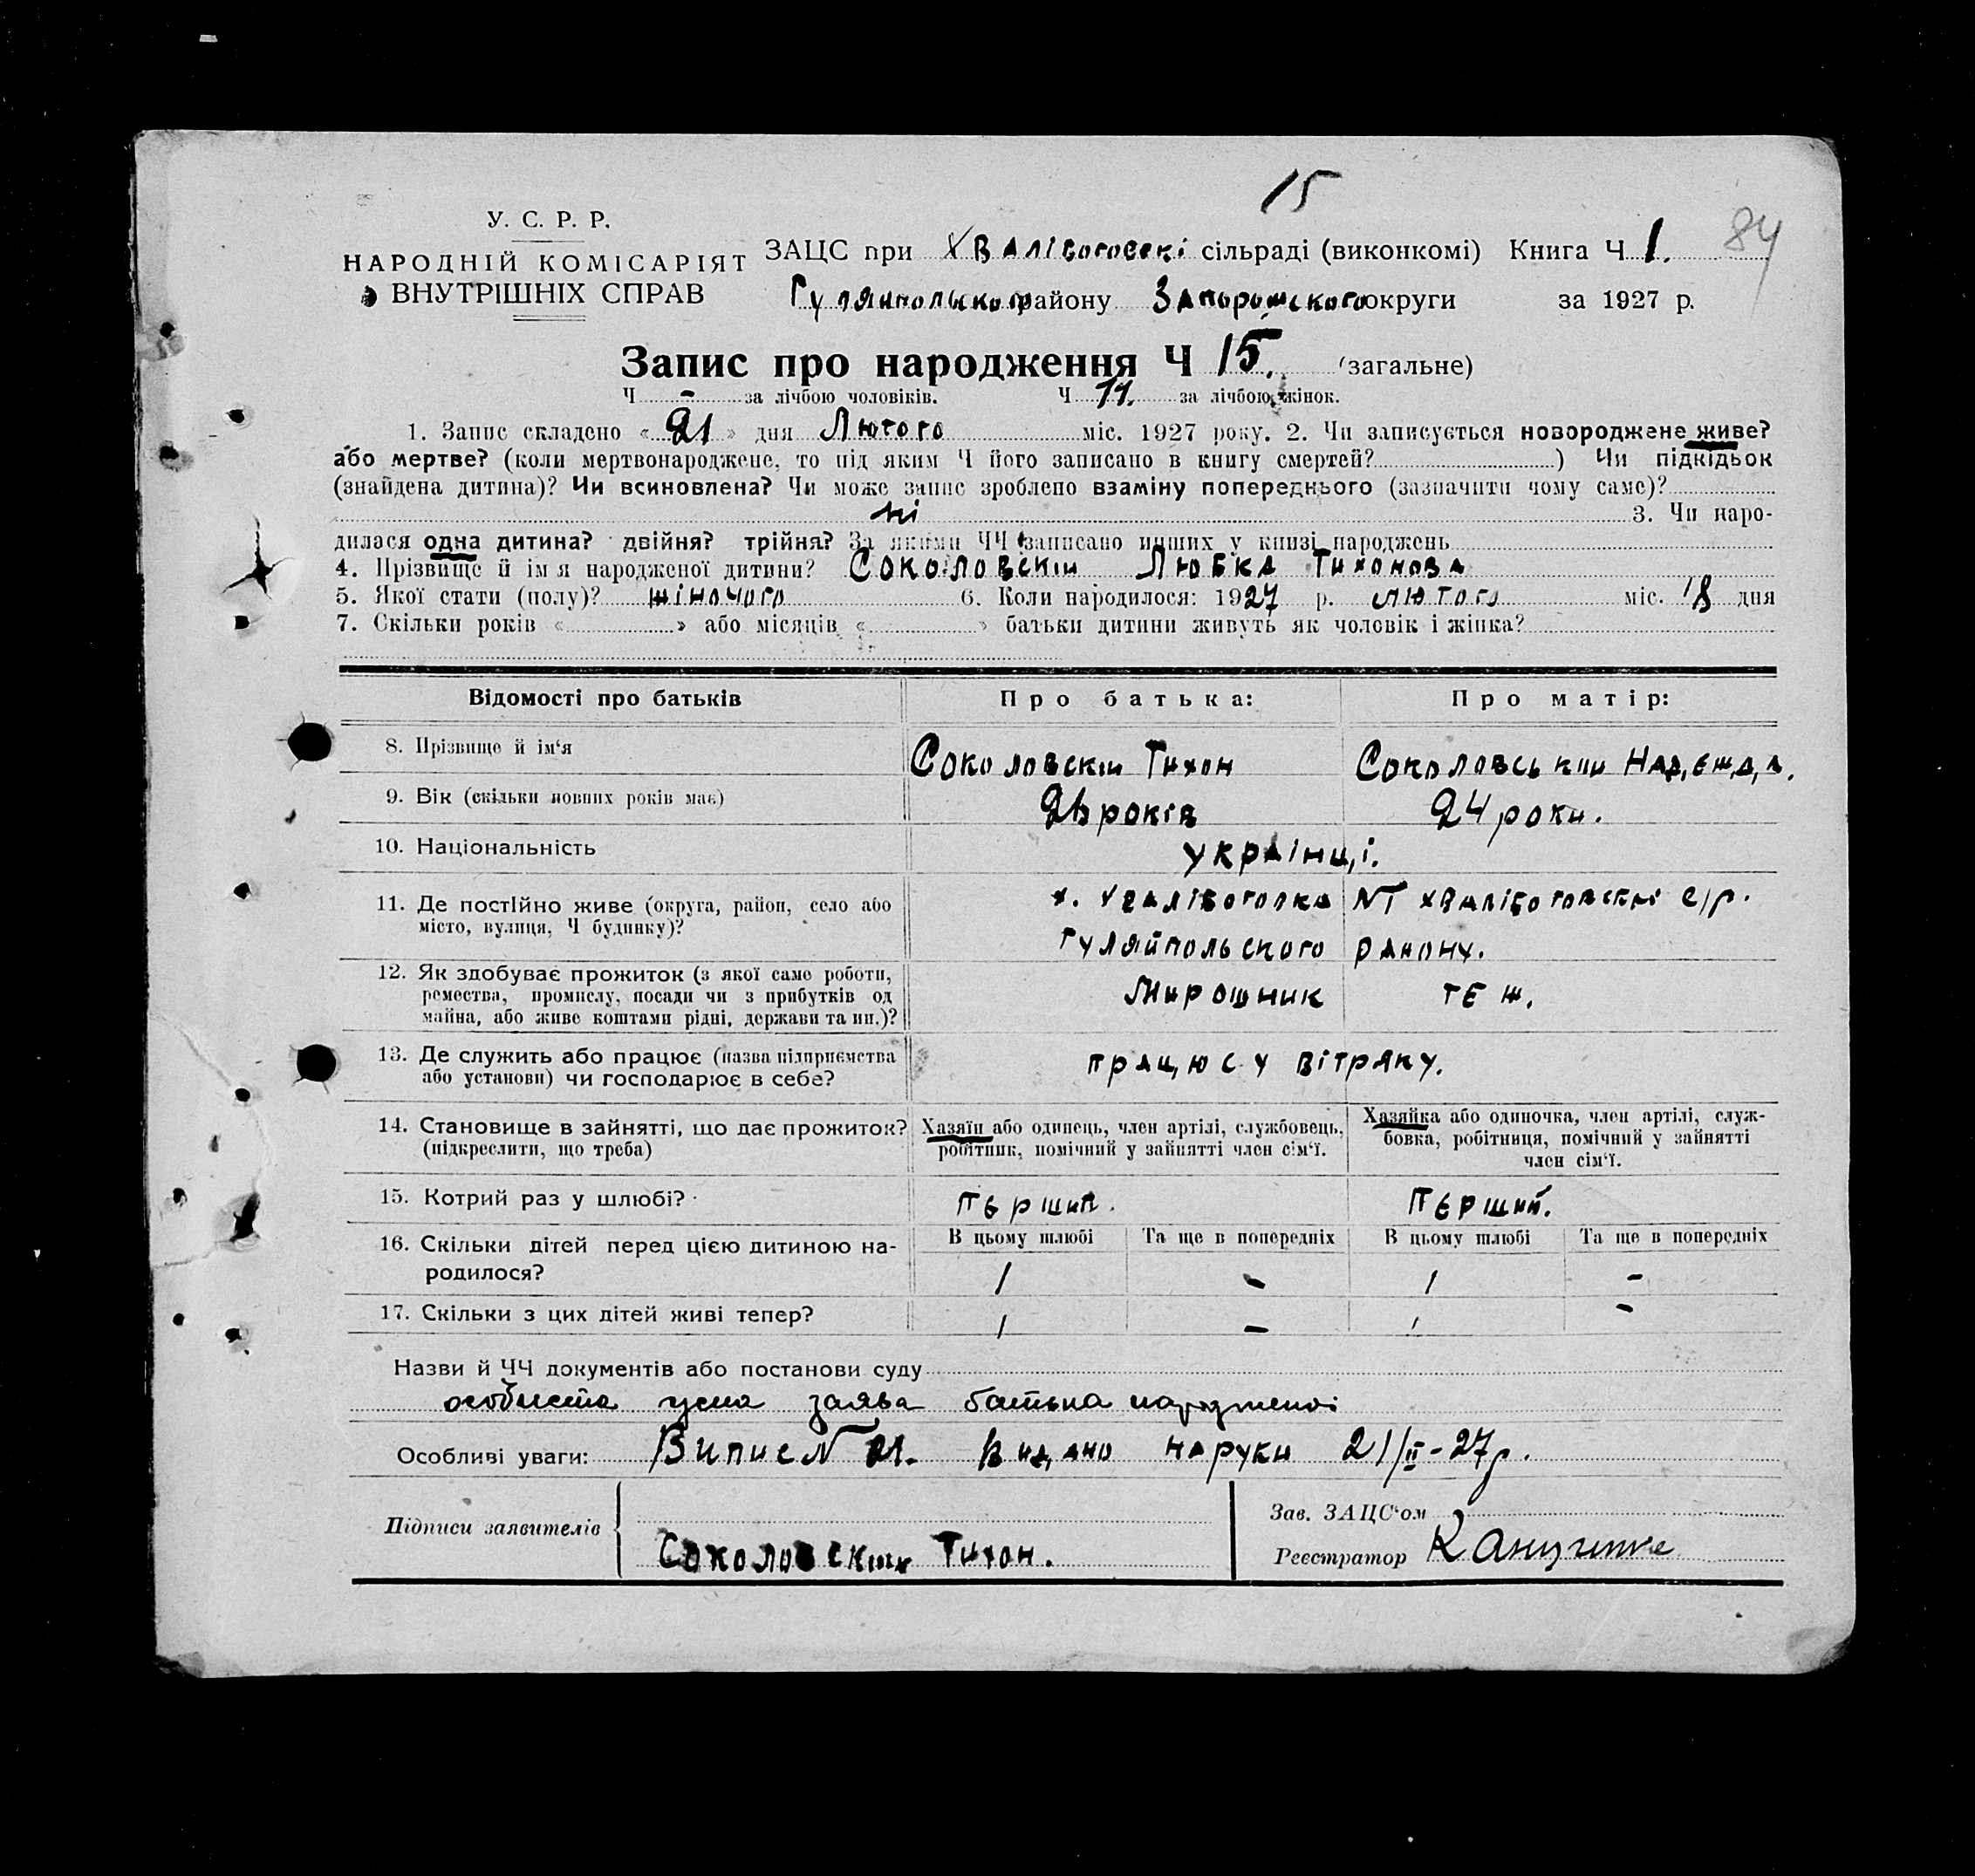 15
84
У. С. Р. Р.
НАРОДНІЙ КОМІСАРІЯТ
ВНУТРІШНІХ СПРАВ
ЗАЦС при Хвалібоговскі сільраді (виконкомі) Книга Ч 1.
Гуляйпольског району Запорожского округи за 1927 р.
Запис про народження Ч 15. (загальне)
Ч - за лічбою чоловіків. Ч 11. за лічбою жінок.
1. Запис складено « 21 » дня Лютого міс. 1927 року. 2. Чи записується новороджене живе?
або мертве? (коли мертвонароджене, то під яким Ч його записано в книгу смертей? ) Чи підкідьок
(знайдена дитина)? Чи всиновлена? Чи може запис зроблено взаміну попереднього (зазначити чому саме)?
ні 3. Чи наро-
дилася одна дитина? двійня? трійня? За якими ЧЧ записано инших у книзі народжень
4. Прізвище й ім'я народженої дитини? Соколовскій Любка Тихонова
5. Якої стати (полу)? жіночого 6. Коли народилося: 1927 р. лютого міс. 18 дня
7. Скільки років « » або місяців « » батьки дитини живуть як чоловік і жінка?
Відомості про батьків Про батька: Про матір:
8. Прізвище й ім'я Соколовскій Тихон Соколовський Надєжда.
9. Вік (скільки повних років має) років 24 роки.
10. Національність українці.
11. Де постійно живе (округа, район, село або
місто, вулиця, Ч будинку)?
х. Хвалібоговка №1 Хвалібоговскої с/р.
Гуляйпольского району.
12. Як здобуває прожиток (з якої саме роботи,
ремества, промислу, посади чи з прибутків од
майна, або живе коштами рідні, держави та ин.)?
Мирошник теж.
13. Де служить або працює (назва підприємства
або установи) чи господарює в себе?
працює у вітряку.
14. Становище в зайнятті, що дає прожиток?
(підкреслити, що треба)
Хазяїн або одинець, член артілі, службовець,
робітник, помічний у зайнятті член сім'ї.
Хазяйка або одиночка, член артілі, служ-
бовка, робітниця, помічний у зайнятті
член сім'ї.
15. Котрий раз у шлюбі? перший. перший.
16. Скільки дітей перед цією дитиною на-
родилося?
В цьому шлюбі Та ще в попередніх В цьому шлюбі Та ще в попередніх
1 - 1 -
17. Скільки з цих дітей живі тепер? 1 - 1 -
Назви й ЧЧ документів або постанови суду
особиста усна заява батька народженої
Особливі уваги: Випис № 21. Видано на руки 21/II-27р.
Підписи заявителів
Соколовский Тихон.
Зав. ЗАЦС'ом
Реєстратор